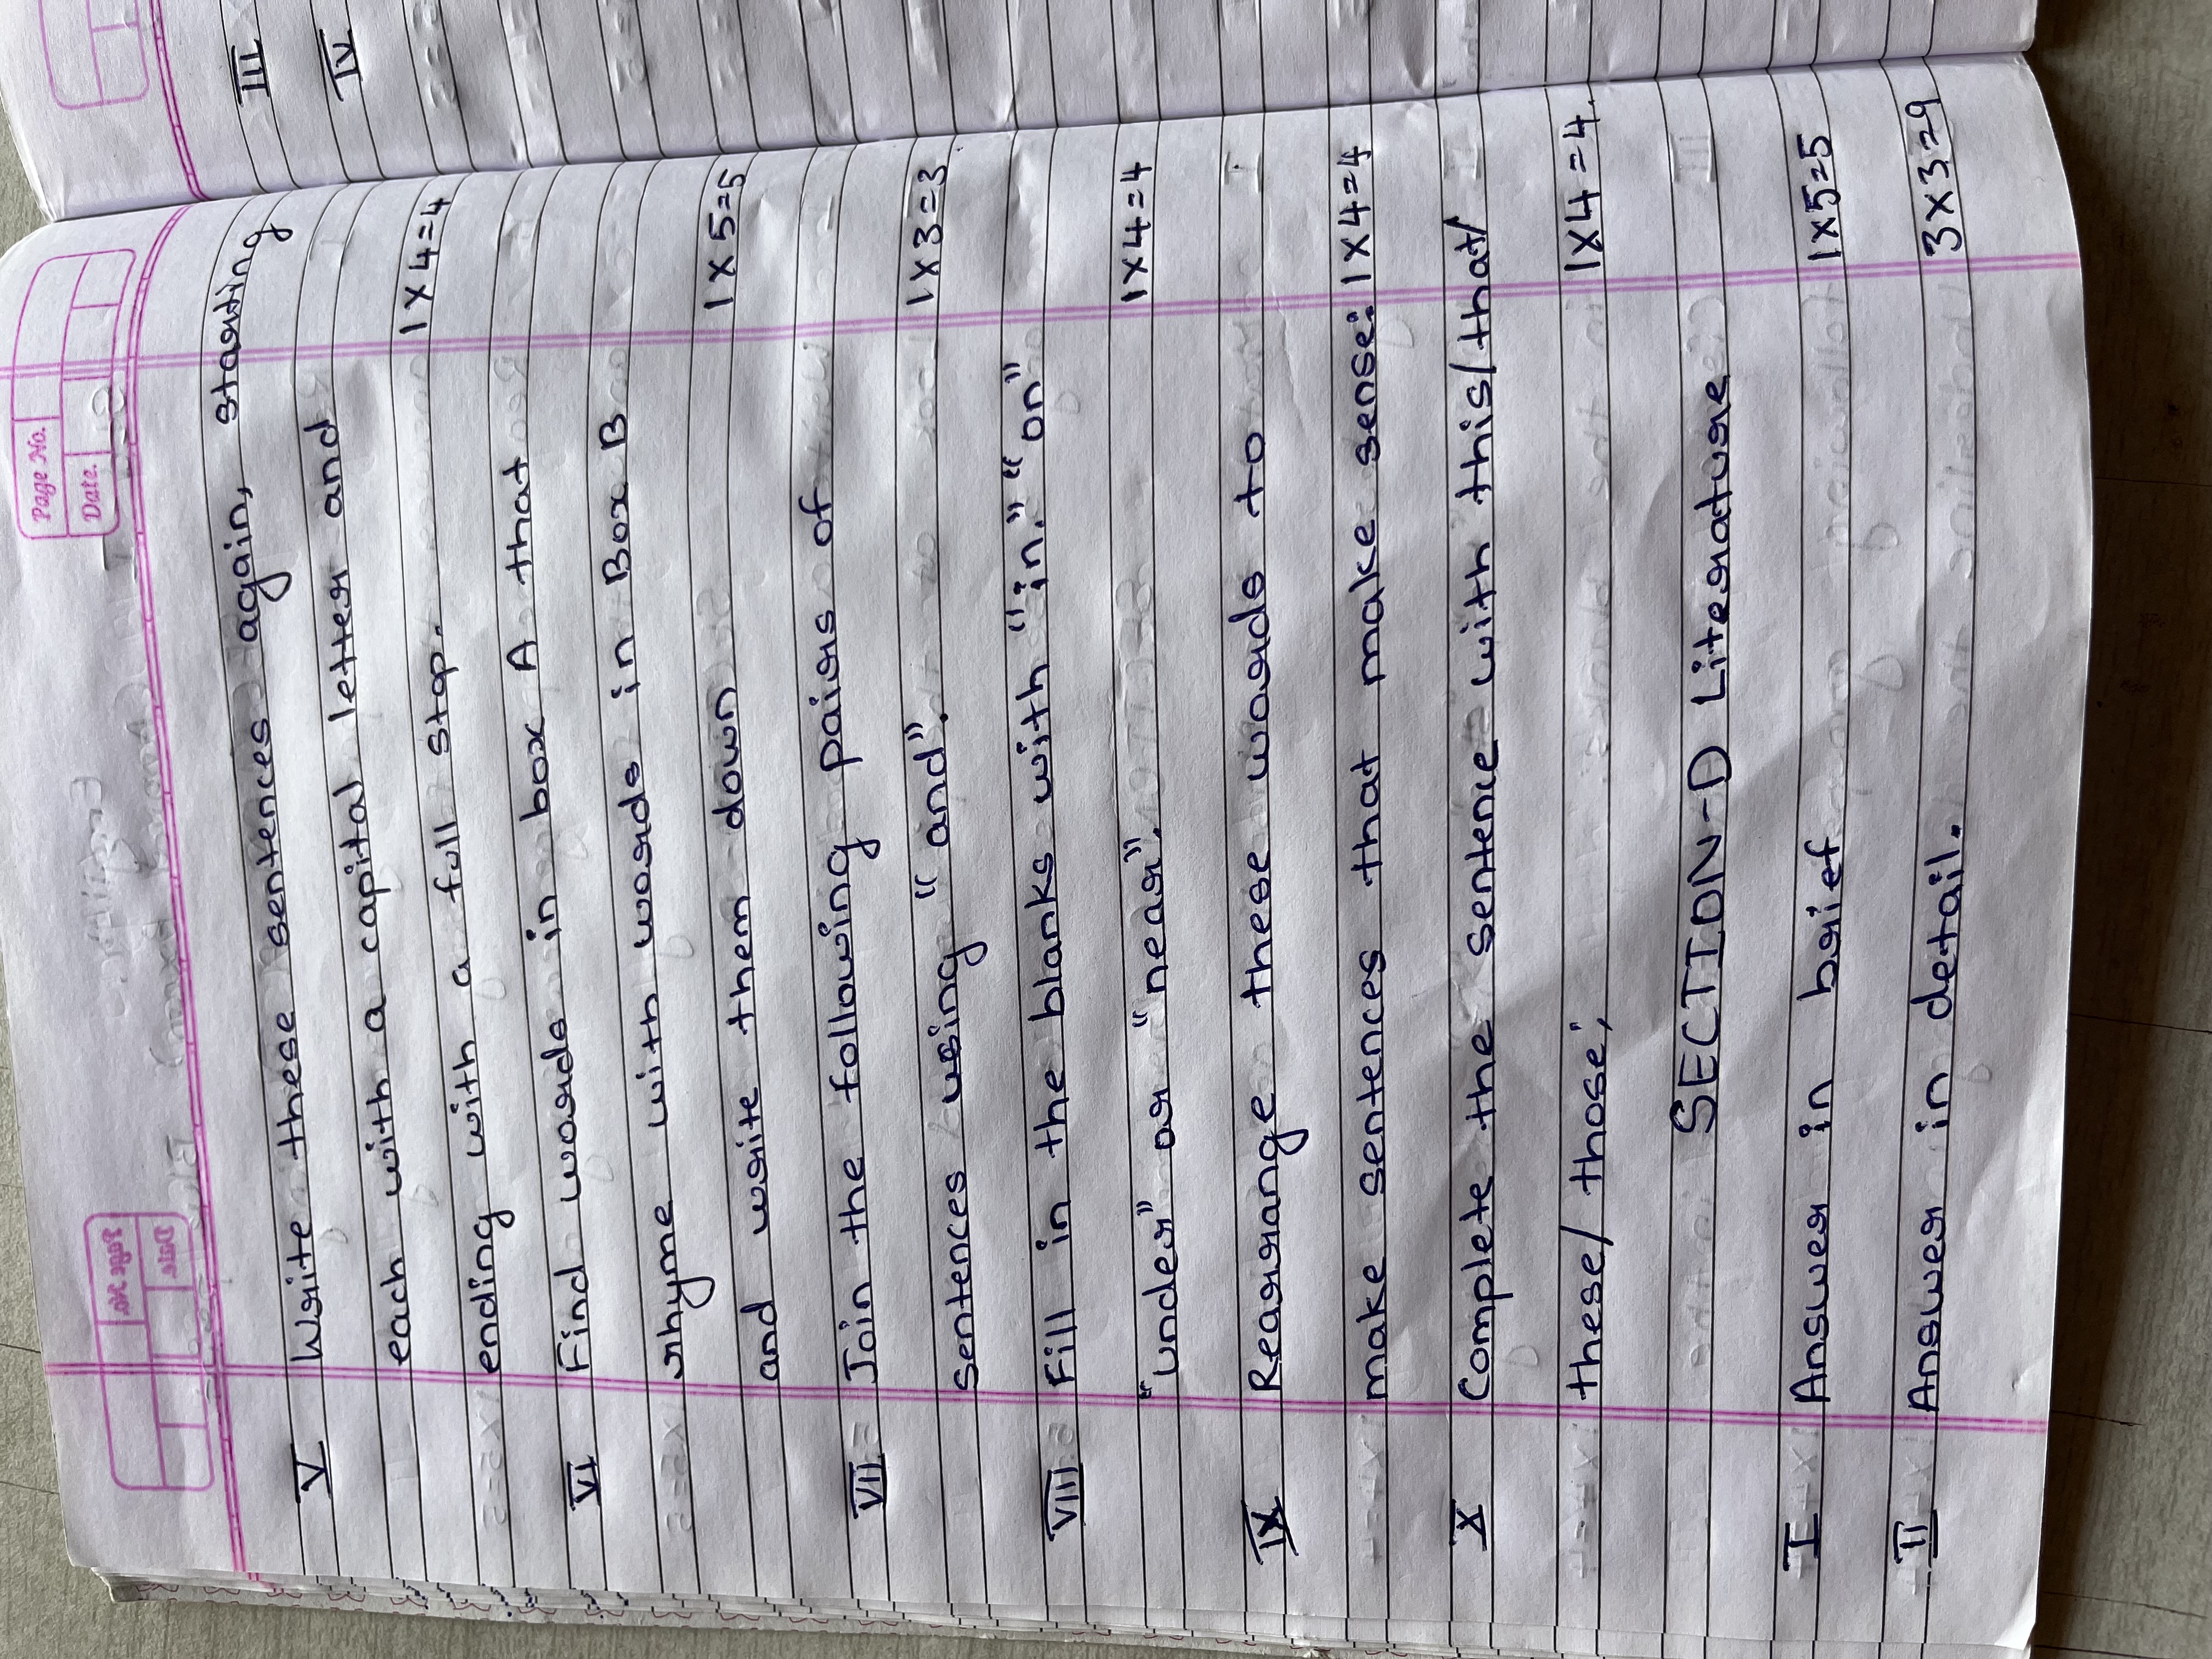 Page No.
Date.
V Write these sentences again, starting
each with a capital letter and
ending with a full stop. 1 x 4 = 4
VI Find words in box A that
rhyme with words in Box B
and write them down 1 x 5 = 5
VII Join the following pairs of
sentences using "and". 1 x 3 = 3
VIII Fill in the blanks with "in." "on"
"under" or "near". 1 x 4 = 4
IX Rearrange these words to
make sentences that make sense: 1 x 4 = 4
X Complete the sentence with this/that/
these/those; 1 x 4 = 4.
SECTION-D Literature
I Answer in brief 1 x 5 = 5
II Answer in detail. 3 x 3 = 9
III
IV